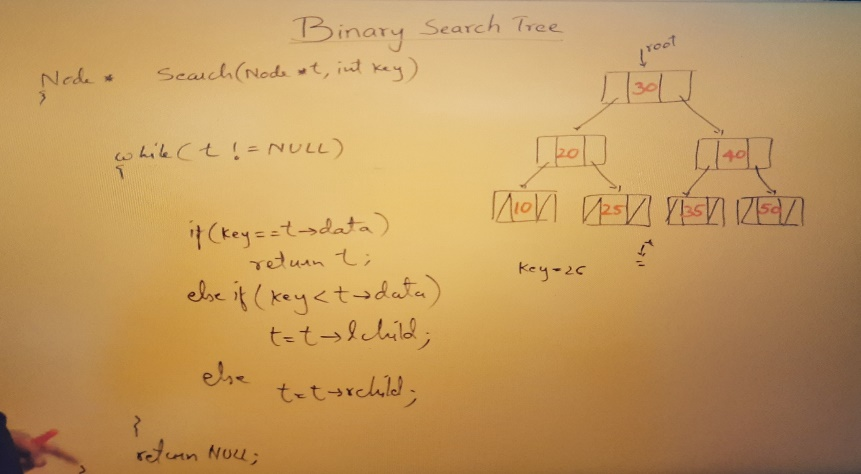 Binary Search Tree
Node * Search(Node *t, int key)
{
while(t != NULL)
{
if(key==t→data)
return t;
else if(key<t→data)
t=t→lchild;
else
t=t→rchild;
}
return NULL;
}
root
30
20 40
10 25 35 50
key=26
t